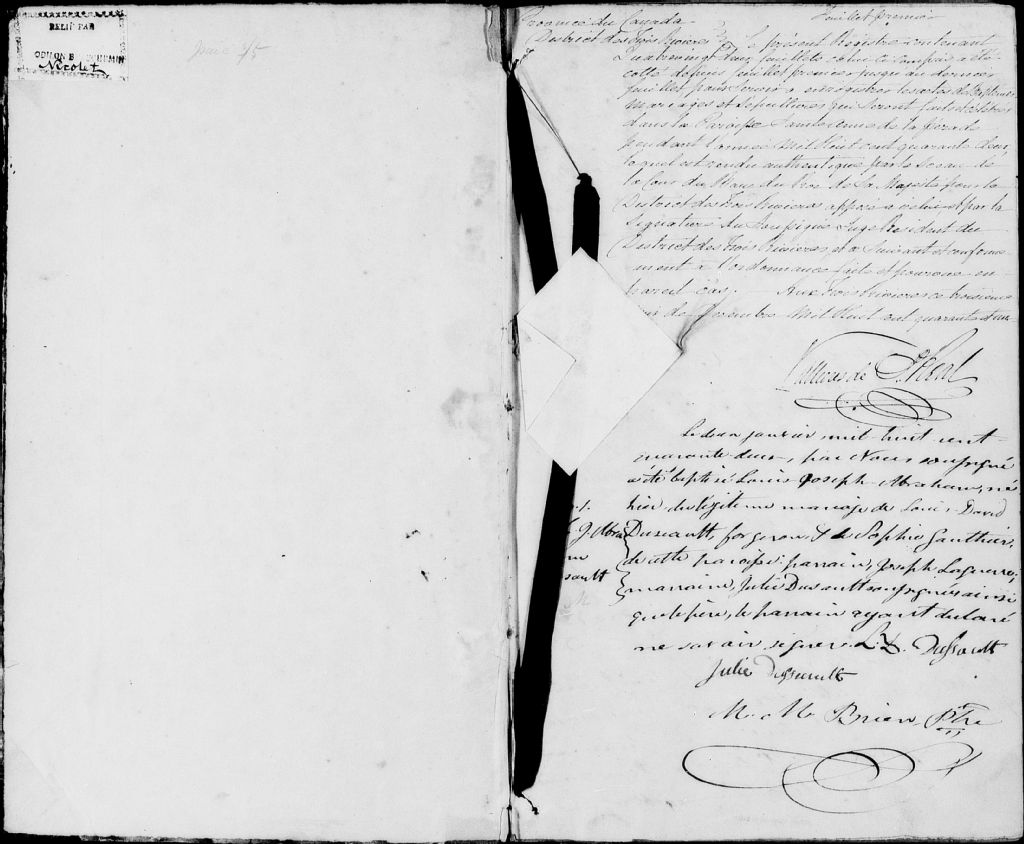 RELIÉ PAR
Nicolet
Feuillet premier
Province du Canada
District des Trois Rivières
Le présent Registre contenant
Quatrevingt deux feuillets celui ci compris a été
cotté depuis feuillet premier jusqu'au dernier
feuillet pour servir à enregistrer les actes de Baptêmes
Mariages et Sepultures qui seront faits
dans la Paroisse Sainte Anne de la Pérade
pendant l'année Mil huit cent quarante deux
lequel est rendu authentique par le Sceau de
la Cour du Banc du Roi de Sa Majesté pour le
District des Trois Rivieres apposé à celui et par la
Signature du Soussigné Juge Resident du
District des Trois Rivieres, et a Suivant et conforme-
ment à l'ordonnance faite et pourvue en
pareil cas. Aux Trois Rivieres ce troisieme
jour de Decembre Mil Huit cent quarante et un
Vallieres de St. Real
Le deux janvier mil huit cent
quarante deux, par Nous soussigné
a été baptisé Louis Joseph Abraham, né
hier du légitime mariage de Louis David
Dussault, forgeron & de Sophie Gauthier,
de cette paroisse: parrain, Joseph Laguerre,
marraine, Julie Dussault soussignés ainsi
que le père, le parrain ayant declaré
ne savoir signer. L. D. Dussault
Julie Dussault
M. M. Brien Ptre